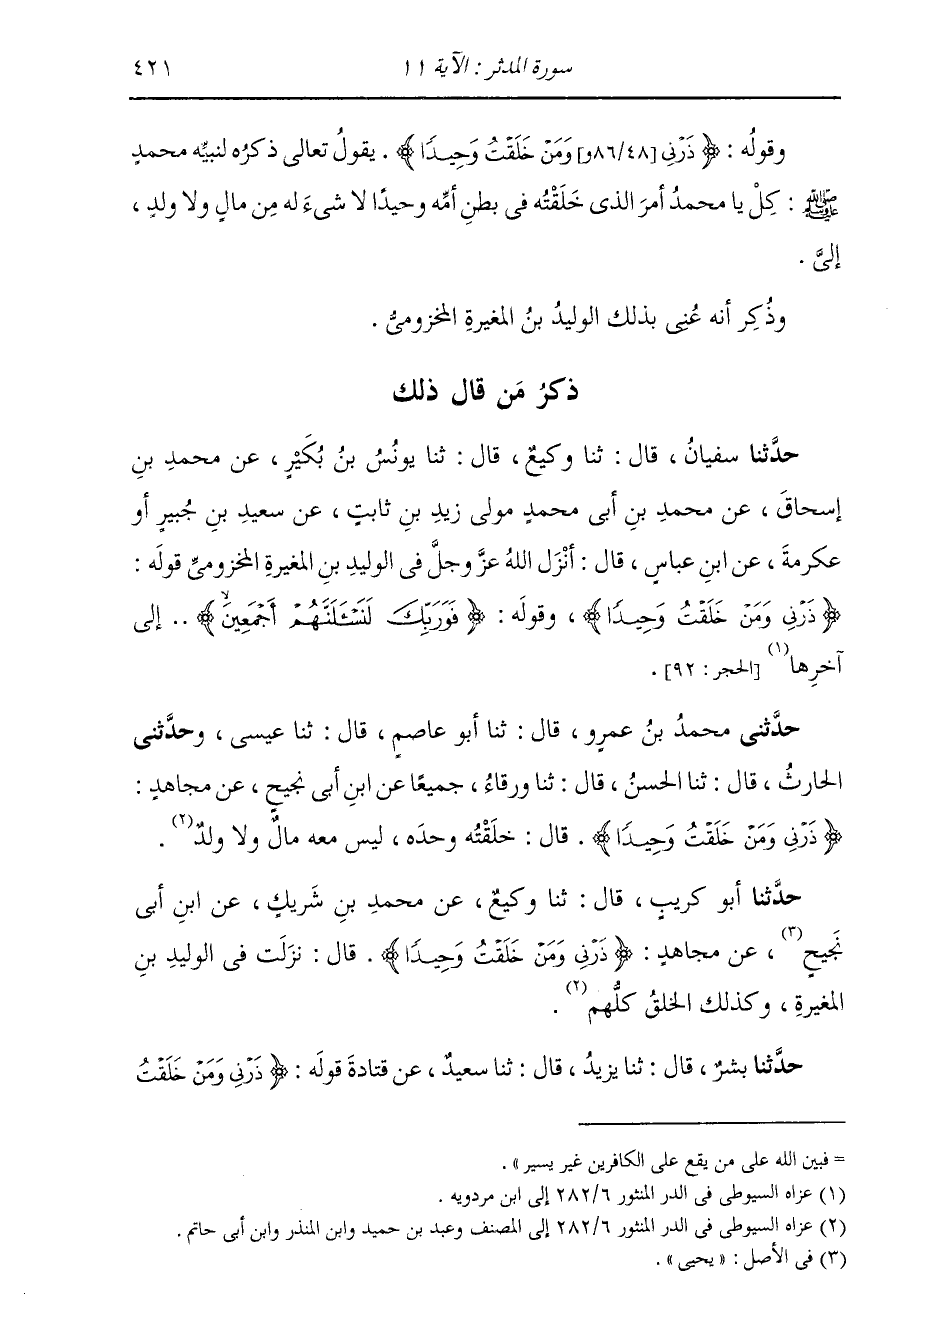 سورة المدثر : الآية ١١ ٤٢١
وقولُه : ﴿ ذَرْنِى [٨٦/٤٨و] وَمَنْ خَلَقْتُ وَحِيدًا ﴾ . يقولُ تعالى ذكرُه لنبيِّه محمدٍ
ﷺ : كِلْ يا محمدُ أمرَ الذى خَلَقْتُه فى بطنِ أمِّه وحيدًا لا شىءَ له مِن مالٍ ولا ولدٍ ،
إلىَّ .
وذُكِر أنه عُنِى بذلك الوليدُ بنُ المغيرةِ المخزومىُّ .
ذكرُ مَن قال ذلك
حدَّثنا سفيانُ ، قال : ثنا وكيعٌ ، قال : ثنا يونُسُ بنُ بُكَيْرٍ ، عن محمدِ بنِ
إسحاقَ ، عن محمدِ بنِ أبى محمدٍ مولى زيدِ بنِ ثابتٍ ، عن سعيدِ بنِ جُبيرٍ أو
عكرمةَ ، عن ابنِ عباسٍ ، قال : أنْزَل اللهُ عزَّ وجلَّ فى الوليدِ بنِ المغيرةِ المخزومىِّ قولَه :
﴿ ذَرْنِى وَمَنْ خَلَقْتُ وَحِيدًا ﴾ ، وقولَه : ﴿ فَوَرَبِّكَ لَنَسْـَٔلَنَّهُمْ أَجْمَعِينَ ﴾ .. إلى
آخرِها (١) [الحجر : ٩٢] .
حدَّثنى محمدُ بنُ عمرٍو ، قال : ثنا أبو عاصمٍ ، قال : ثنا عيسى ، وحدَّثنى
الحارثُ ، قال : ثنا الحسنُ ، قال : ثنا ورقاءُ ، جميعًا عن ابنِ أبى نجيحٍ ، عن مجاهدٍ :
﴿ ذَرْنِى وَمَنْ خَلَقْتُ وَحِيدًا ﴾ . قال : خلَقْتُه وحدَه ، ليس معه مالٌ ولا ولدٌ (٢) .
حدَّثنا أبو كريبٍ ، قال : ثنا وكيعٌ ، عن محمدِ بنِ شَريكٍ ، عن ابنِ أبى
نَجيحٍ (٣) ، عن مجاهدٍ : ﴿ ذَرْنِى وَمَنْ خَلَقْتُ وَحِيدًا ﴾ . قال : نزَلَت فى الوليدِ بنِ
المغيرةِ ، وكذلك الخلقُ كلُّهم (٢) .
حدَّثنا بشرٌ ، قال : ثنا يزيدُ ، قال : ثنا سعيدٌ ، عن قتادةَ قولَه : ﴿ ذَرْنِى وَمَنْ خَلَقْتُ
= فبين الله على من يقع على الكافرين غير يسير » .
(١) عزاه السيوطى فى الدر المنثور ٢٨٢/٦ إلى ابن مردويه .
(٢) عزاه السيوطى فى الدر المنثور ٢٨٢/٦ إلى المصنف وعبد بن حميد وابن المنذر وابن أبى حاتم .
(٣) فى الأصل : « يحيى » .